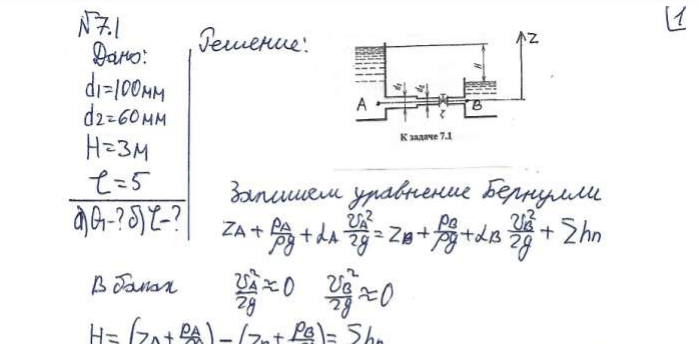 1
№7.1
Дано:
d₁=100мм
d₂=60мм
H=3м
ζ=5
а)Q₁-? б)ζ-?
Решение:
Z
H
d₁
d₂
A
B
ζ
К задаче 7.1
Запишем уравнение Бернулли
z_A + p_A/ρg + α_A v_A²/2g = z_B + p_B/ρg + α_B v_B²/2g + Σhп
В баках v_A²/2g ≈ 0 v_B²/2g ≈ 0
H = (z_A + p_A/ρg) − (z_B + p_B/ρg) = Σhп